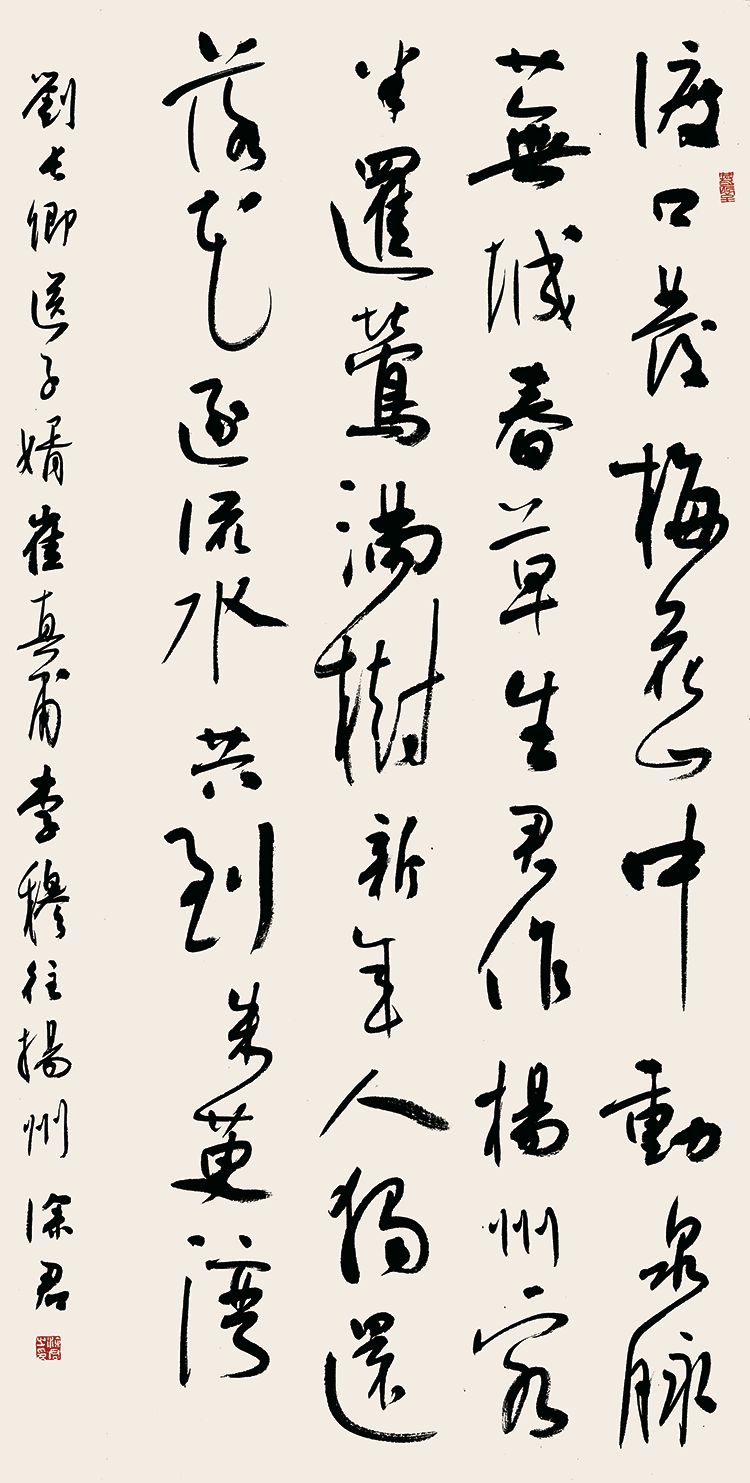 渡口發梅花山中動泉脉
蕪城春草生君作楊州客
半邏鶯滿樹新年人獨還
落花逐流水共到朱萸灣
劉長卿送子婿崔真甫李穆往揚州 君